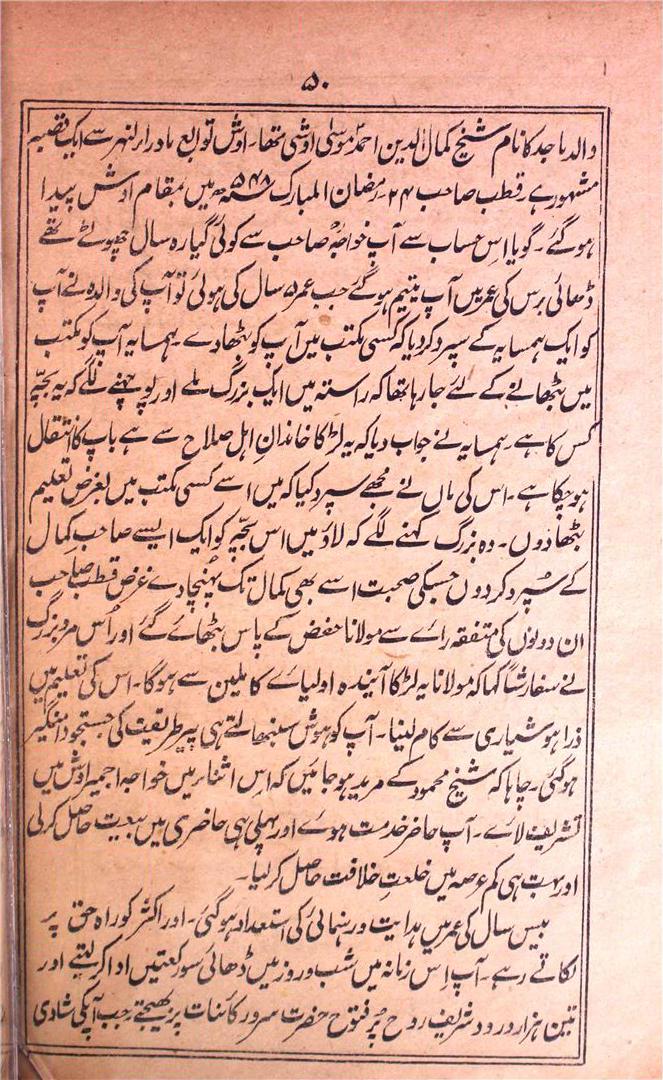 ۵۰
والد ماجد کا نام شیخ کمال الدین احمد موسیٰ اوشی تھا۔ اوش توابع ماورار النہر سے ایک قصبہ
مشہور ہے۔ قطب صاحب ۲۴ رمضان المبارک ۵۴۸ھ میں بمقام اوش پیدا
ہو گئے۔ گویا اس حساب سے آپ خواجہ صاحب سے کوئی گیارہ سال چھوٹے تھے
ڈھائی برس کی عمر میں آپ یتیم ہو گئے جب عمر ۵ سال کی ہوئی تو آپ کی والدہ نے آپ
کو ایک ہمسایہ کے سپرد کر دیا کہ کسی مکتب میں آپ کو بٹھا دے۔ ہمسایہ آپ کو مکتب
میں بٹھانے کے لئے جا رہا تھا کہ راستہ میں ایک بزرگ ملے اور پوچھنے لگے کہ یہ بچّہ
کس کا ہے۔ ہمسایہ نے جواب دیا کہ یہ لڑکا خاندانِ اہل صلاح سے ہے باپ کا انتقال
ہو چکا ہے۔ اس کی ماں نے مجھے سپرد کیا کہ میں اسے کسی مکتب میں بغرض تعلیم
بٹھا دوں۔ وہ بزرگ کہنے لگے کہ لاؤ میں اس بچّہ کو ایک ایسے صاحب کمال
کے سُپرد کر دوں جسکی صحبت اسے بھی کمال تک پہنچا دے غرض قطب صاحب
ان دونوں کی متفقہ رائے سے مولانا حفص کے پاس بٹھائے گئے اور اُس مرد بزرگ
نے سفارشاً کہا کہ مولانا یہ لڑکا آیندہ اولیائے کاملین سے ہوگا۔ اس کی تعلیم میں
ذرا ہوشیاری سے کام لینا۔ آپ کو ہوش سنبھالتے ہی پیر طریقت کی جستجو دامنگیر
ہو گئی۔ چاہا کہ شیخ محمود کے مرید ہو جائیں کہ اس اثناء میں خواجہ اجمیر اوش میں
تشریف لائے۔ آپ حاضر خدمت ہوئے اور پہلی ہی حاضری میں بیعت حاصل کر لی
اور بہت ہی کم عرصہ میں خلعتِ خلافت حاصل کر لیا۔
بیس سال کی عمر میں ہدایت و رہنمائی کی استعداد ہو گئی۔ اور اکثر کو راہ حق پر
لگاتے رہے۔ آپ اس زمانہ میں شب و روز میں ڈھائی سو رکعتیں ادا کر لیتے اور
تین ہزار درود شریف روح پُر فتوح حضرت سرور کائنات پر بھیجتے۔ جب آپکی شادی